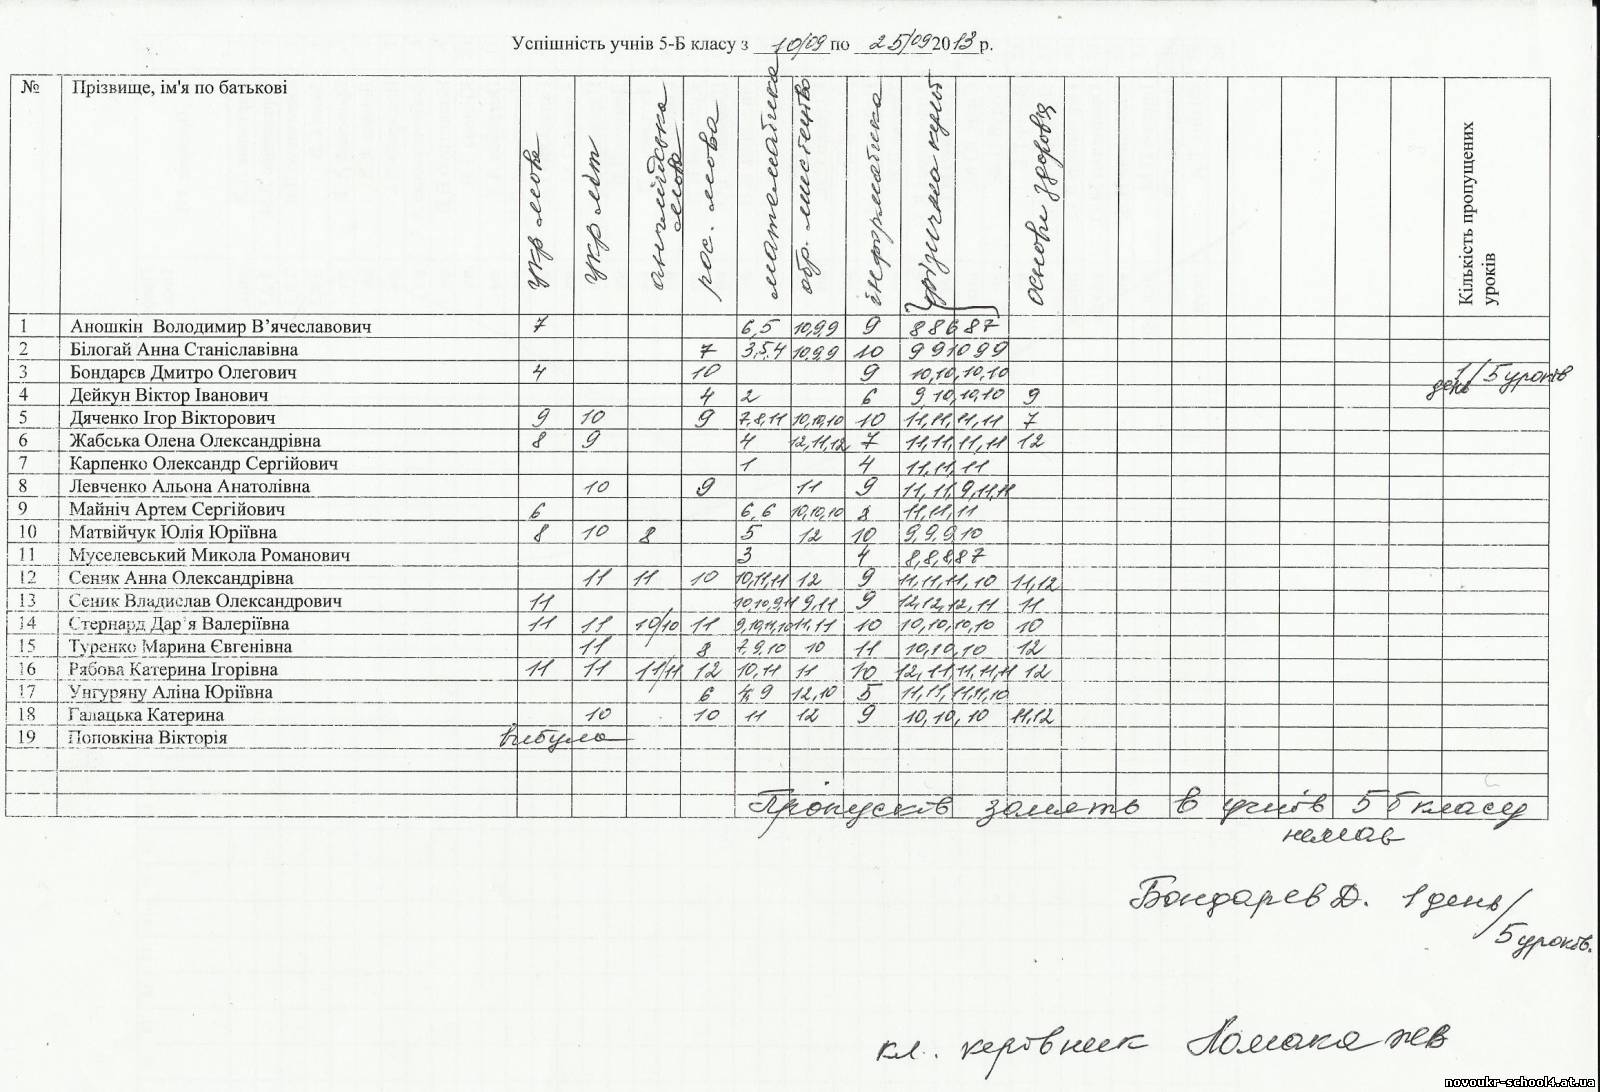 Успішність учнів 5-Б класу з 10/09 по 25/09 2013 р.
№ Прізвище, ім'я по батькові укр мова укр літ англійська мова рос. мова математика обр. мистецтво інформатика фізична культ основи здоров'я Кількість пропущених уроків
1 Аношкін Володимир В'ячеславович 7 6,5 10,9,9 9 8 8 6 8 7
2 Білогай Анна Станіславівна 7 3,5,4 10,9,9 10 9 9 10 9 9
3 Бондарєв Дмитро Олегович 4 10 9 10,10,10,10 1 день/5 уроків
4 Дейкун Віктор Іванович 4 2 6 9,10,10,10 9
5 Дяченко Ігор Вікторович 9 10 9 7,8,11 10,10,10 10 11,11,11,11 7
6 Жабська Олена Олександрівна 8 9 4 12,11,12 7 11,11,11,11 12
7 Карпенко Олександр Сергійович 1 4 11,11,11
8 Левченко Альона Анатолівна 10 9 11 9 11,11,9,11,11
9 Майніч Артем Сергійович 6 6,6 10,10,10 8 11,11,11
10 Матвійчук Юлія Юріївна 8 10 8 5 12 10 9,9,9,10
11 Муселевський Микола Романович 3 4 8,8,8,8 7
12 Сеник Анна Олександрівна 11 11 10 10,11,11 12 9 11,11,11,10 11,12
13 Сеник Владислав Олександрович 11 10,10,9,11 9,11 9 12,12,12,11 11
14 Стернард Дар'я Валеріївна 11 11 10/10 11 9,10,11,10 11,11 10 10,10,10,10 10
15 Туренко Марина Євгенівна 11 8 7,9,10 10 11 10,10,10 12
16 Рябова Катерина Ігорівна 11 11 11/11 12 10,11 11 10 12,11,11,11,11 12
17 Унгуряну Аліна Юріївна 6 9 12,10 5 11,11,11,11,10
18 Галацька Катерина 10 10 11 12 9 10,10,10 11,12
19 Поповкіна Вікторія вибула
Пропусків занять в учнів 5 Б класу
немає
Бондарев Д. 1 день/
5 уроків.
кл. керівник
novoukr-school4.at.ua